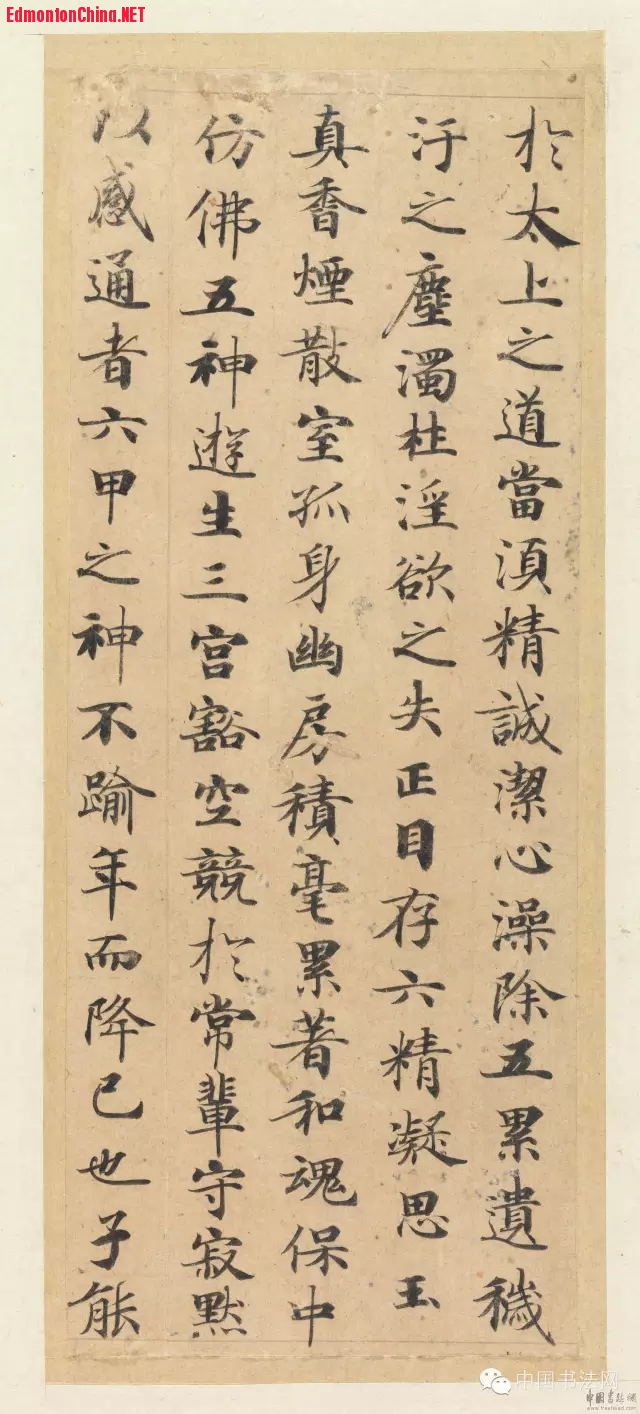 EdmontonChina.NET
於太上之道當湏精誠潔心澡除五累遺穢
汙之塵濁杜淫欲之失正目存六精凝思玉
真香煙散室孤身幽房積毫累著和魂保中
仿佛五神遊生三宮豁空競於常輩守寂默
以感通者六甲之神不踰年而降己也子能
中国书法网
中国书法网